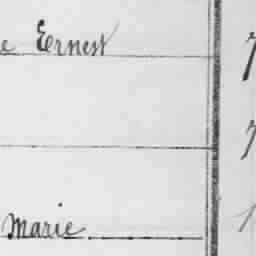 e Ernest
7
7
Marie
1